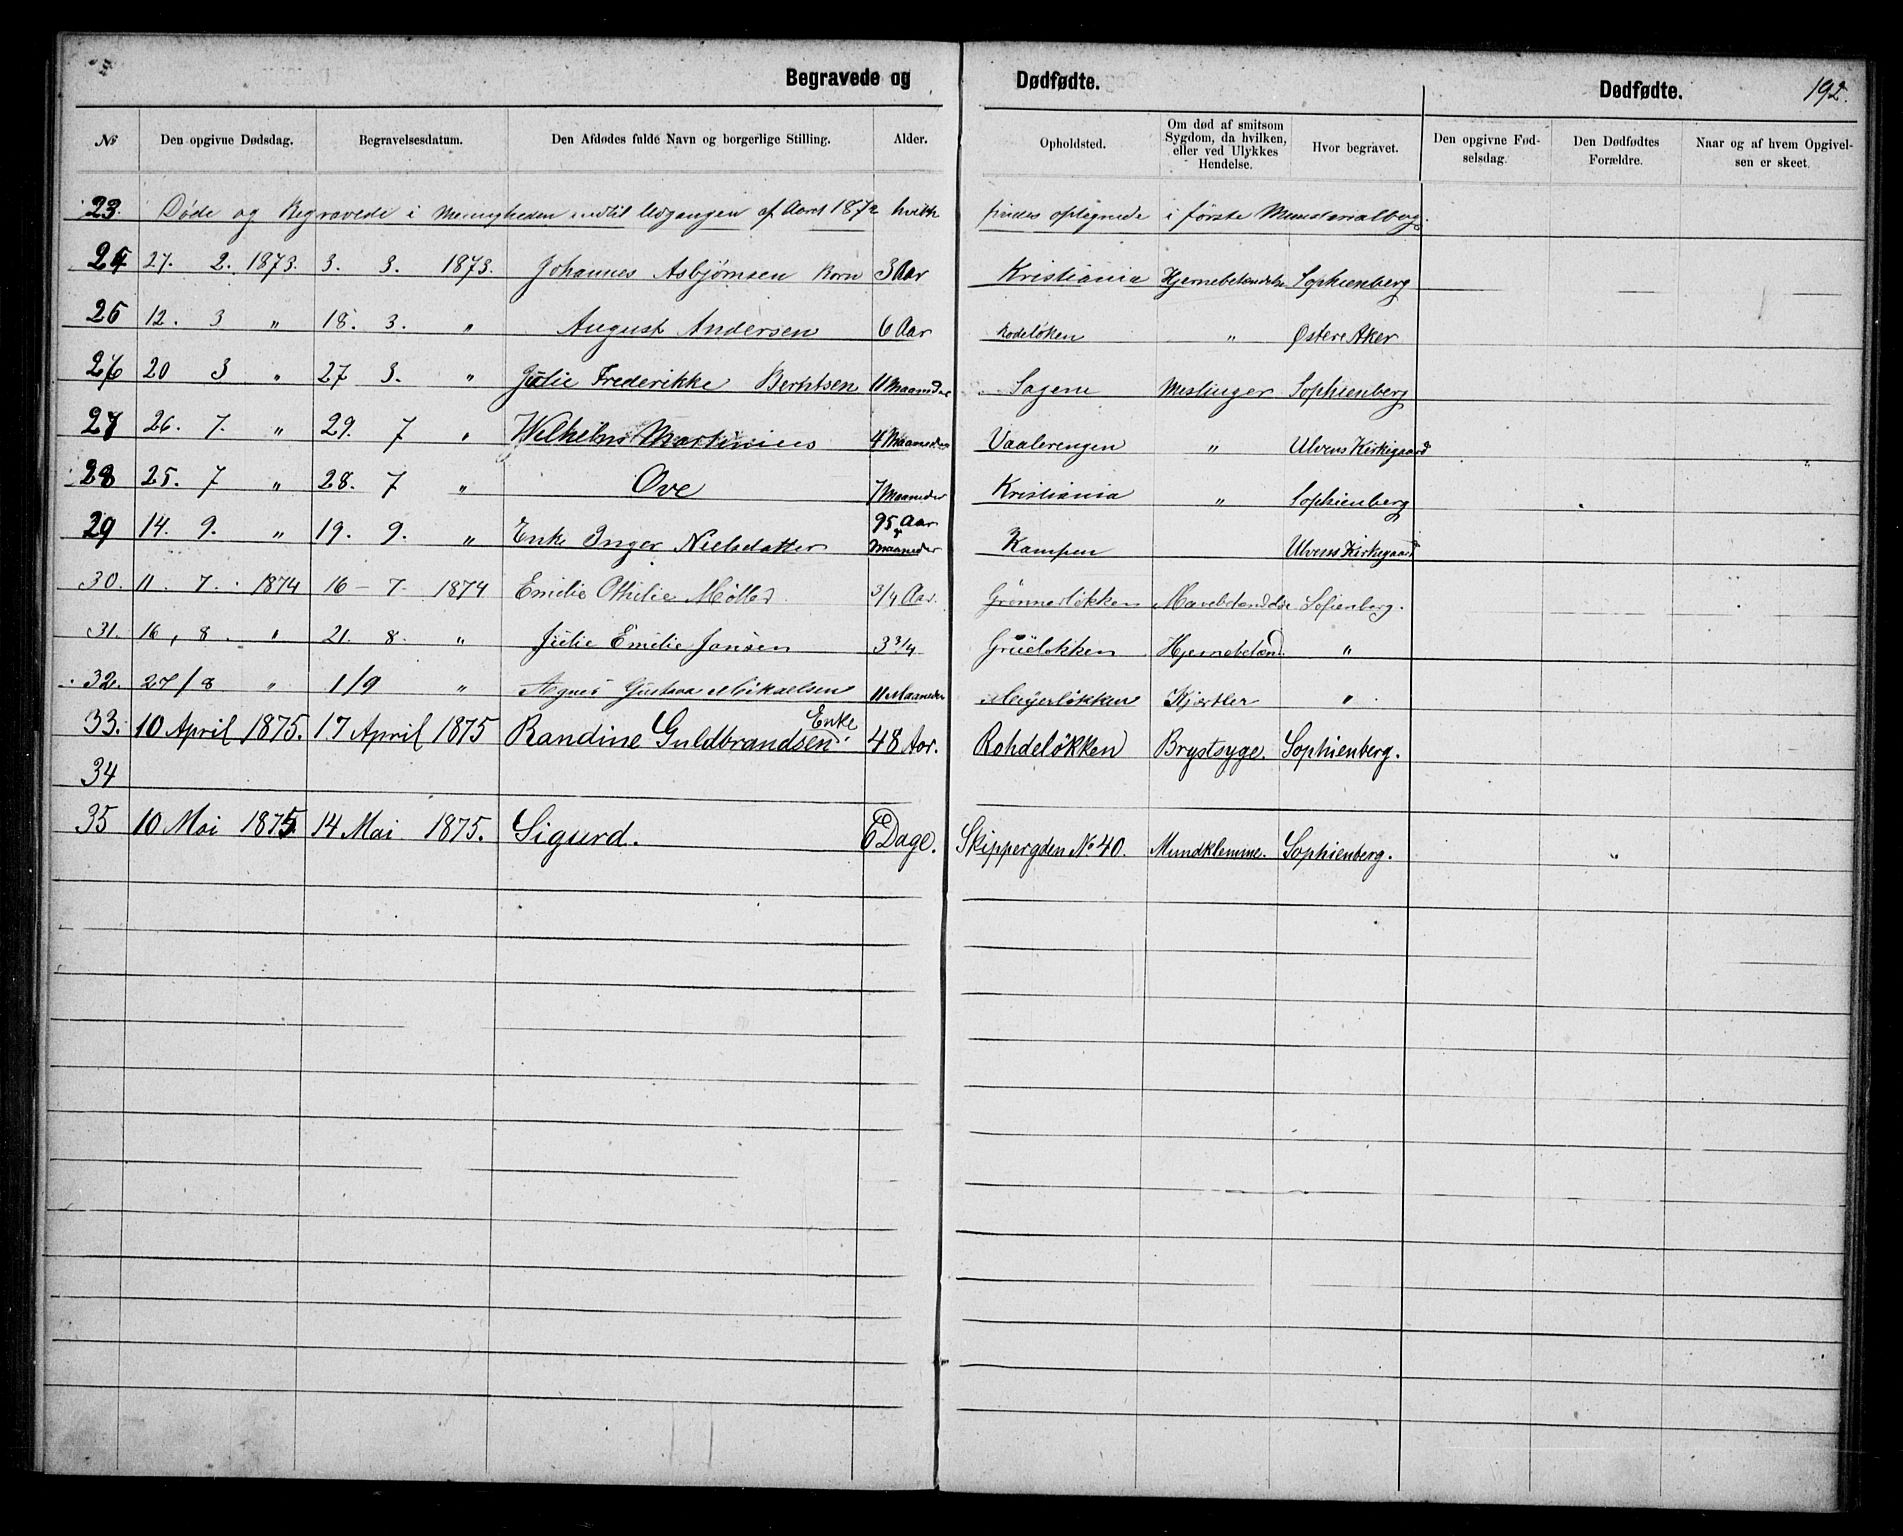 Begravede og Dødfødte. Dødfødte. 192.
No Den opgivne Dødsdag. Begravelsesdatum. Den Afdødes fulde Navn og borgerlige Stilling. Alder. Opholdsted. Om død af smitsom Sygdom, da hvilken, eller ved Ulykkes Hendelse. Hvor begravet. Den opgivne Fødselsdag. Den Dødfødtes Forældre. Naar og af hvem Opgivelsen er skeet.
23. Døde og Begravede i Menigheden indtil Udgangen af Aaret 1872 hvilke findes optegnede i første Ministerialbog.
24 27. 2. 1873. 3. 3. 1873. Johannes Asbjørnsen Korn 3 Aar Kristiania Hjernebetændelse Sophienberg
25 12. 3 " 18. 3. " August Andersen 6 Aar Rodeløken " Østere Aker
26 20 3 " 27 3. " Julie Frederikke Berntsen 11 Maaneder Sagene Meslinger Sophienberg
27 26. 7. " 29. 7 " Wilhelm Martinius 4 Maaneder Vaalerengen " Ulvens Kirkegaard
28 25. 7 " 28. 7 " Ove 7 Maaneder Kristiania " Sophienberg
29 14. 9. " 19. 9. " Enke Inger Nielsdatter 95 Aar Maaneder Kampen Ulvens Kirkegaard
30. 11. 7. 1874 16 - 7. 1874 Emilie Othilie Møller 3/4 Aar. Grønnerløkken Mavebetændelse Sofienberg.
31. 16, 8. " 21. 8. " Julie Emilie Jansen 3 3/4 Grüeløkken Hjernebetænd "
32. 27/8 " 1/9 " Agnes Gustava Mikaelsen 11 Maaneder Meyerløkken Kjertler "
33. 10 April 1875. 17 April 1875 Randine Guldbrandsen Enke. 48 Aar. Rohdeløkken Brystsyge. Sophienberg.
34
35 10 Mai 1875 14 Mai 1875. Sigurd. 6 Dage. Skippergden No 40. Mundklemme. Sophienberg.